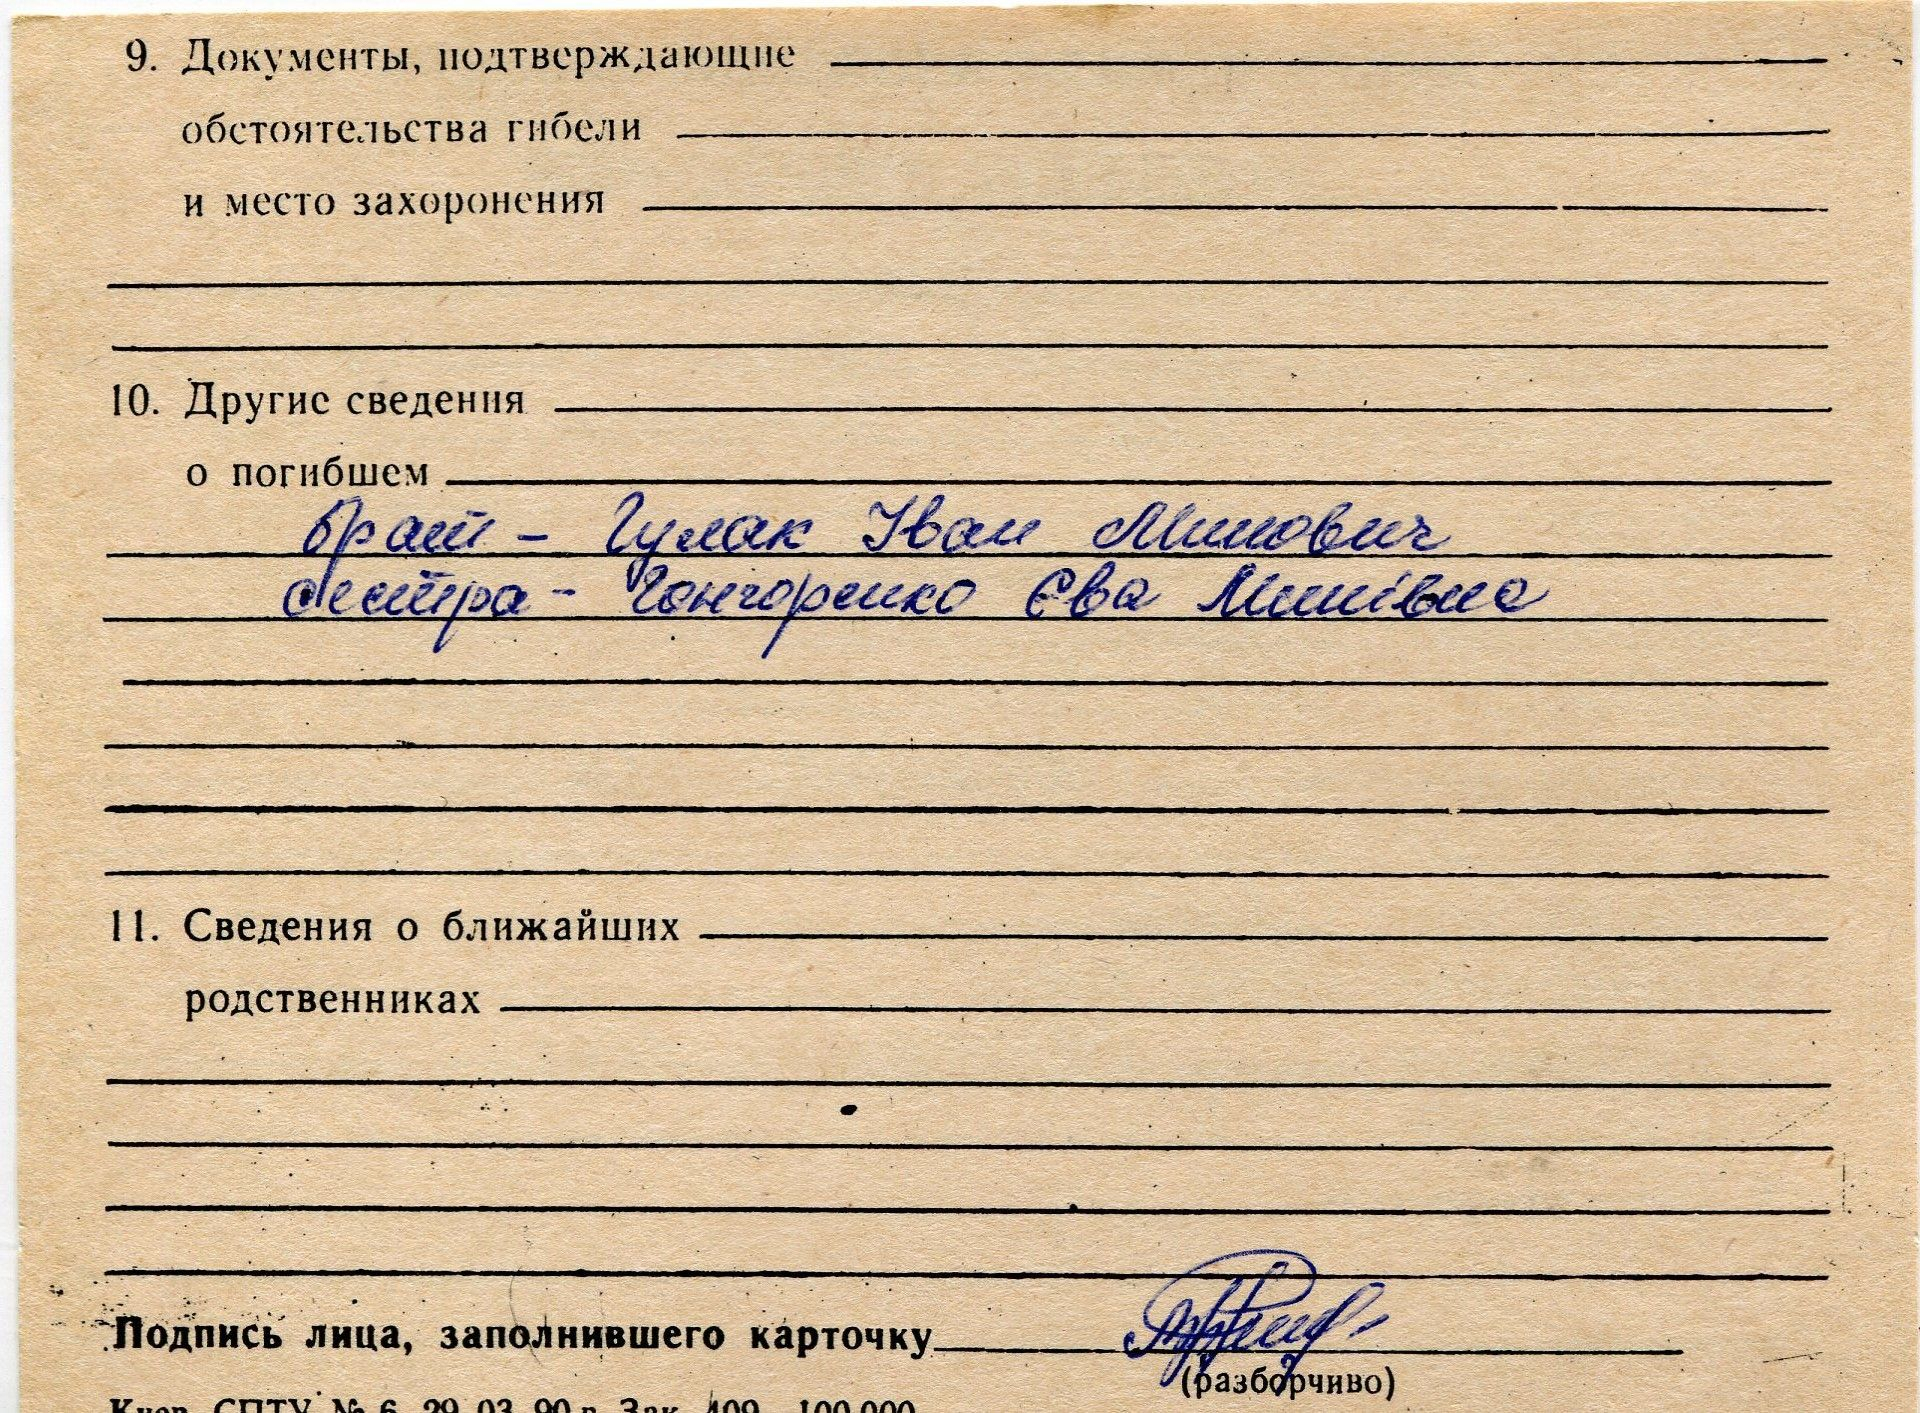 9. Документы, подтверждающие
обстоятельства гибели
и место захоронения
10. Другие сведения
о погибшем
брат - Гулак Іван Минович
сестра - Гончаренко Єва Минівна
11. Сведения о ближайших
родственниках
Подпись лица, заполнившего карточку
(разборчиво)
Киев, СПТУ № 6, 29.03.90 г. Зак. 409 100.000